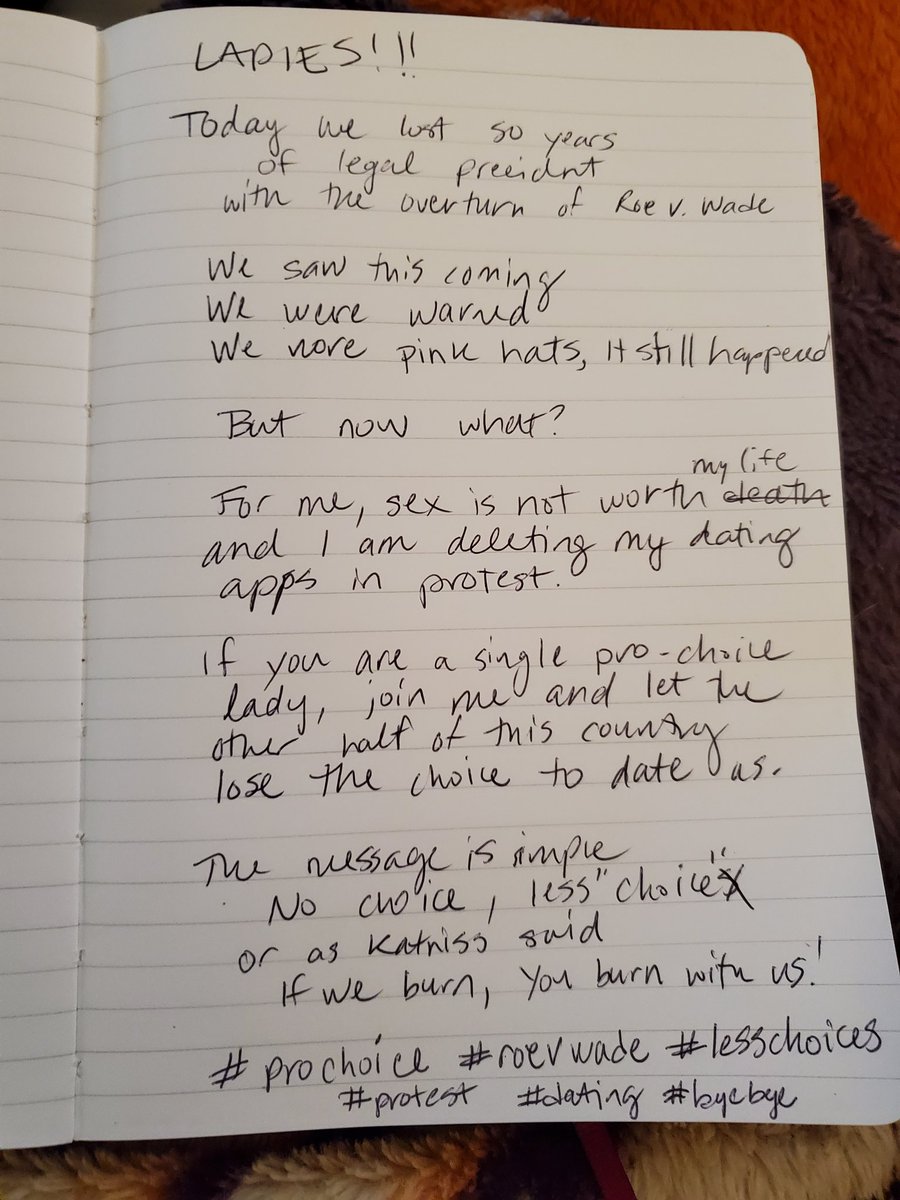 LADIES!!!
Today we lost 50 years
of legal preeidnt
with the overturn of Roe v. Wade
We saw this coming
We were warned
We wore pink hats, it still happened
But now what?
my life
For me, sex is not worth death
and I am deleting my dating
apps in protest.
If you are a single pro-choice
lady, join me and let the
other half of this country
lose the choice to date us.
The message is simple
No choice, less "choice"
or as Katniss said
If we burn, you burn with us!
#prochoice #roevwade #lesschoices
#protest #dating #byebye